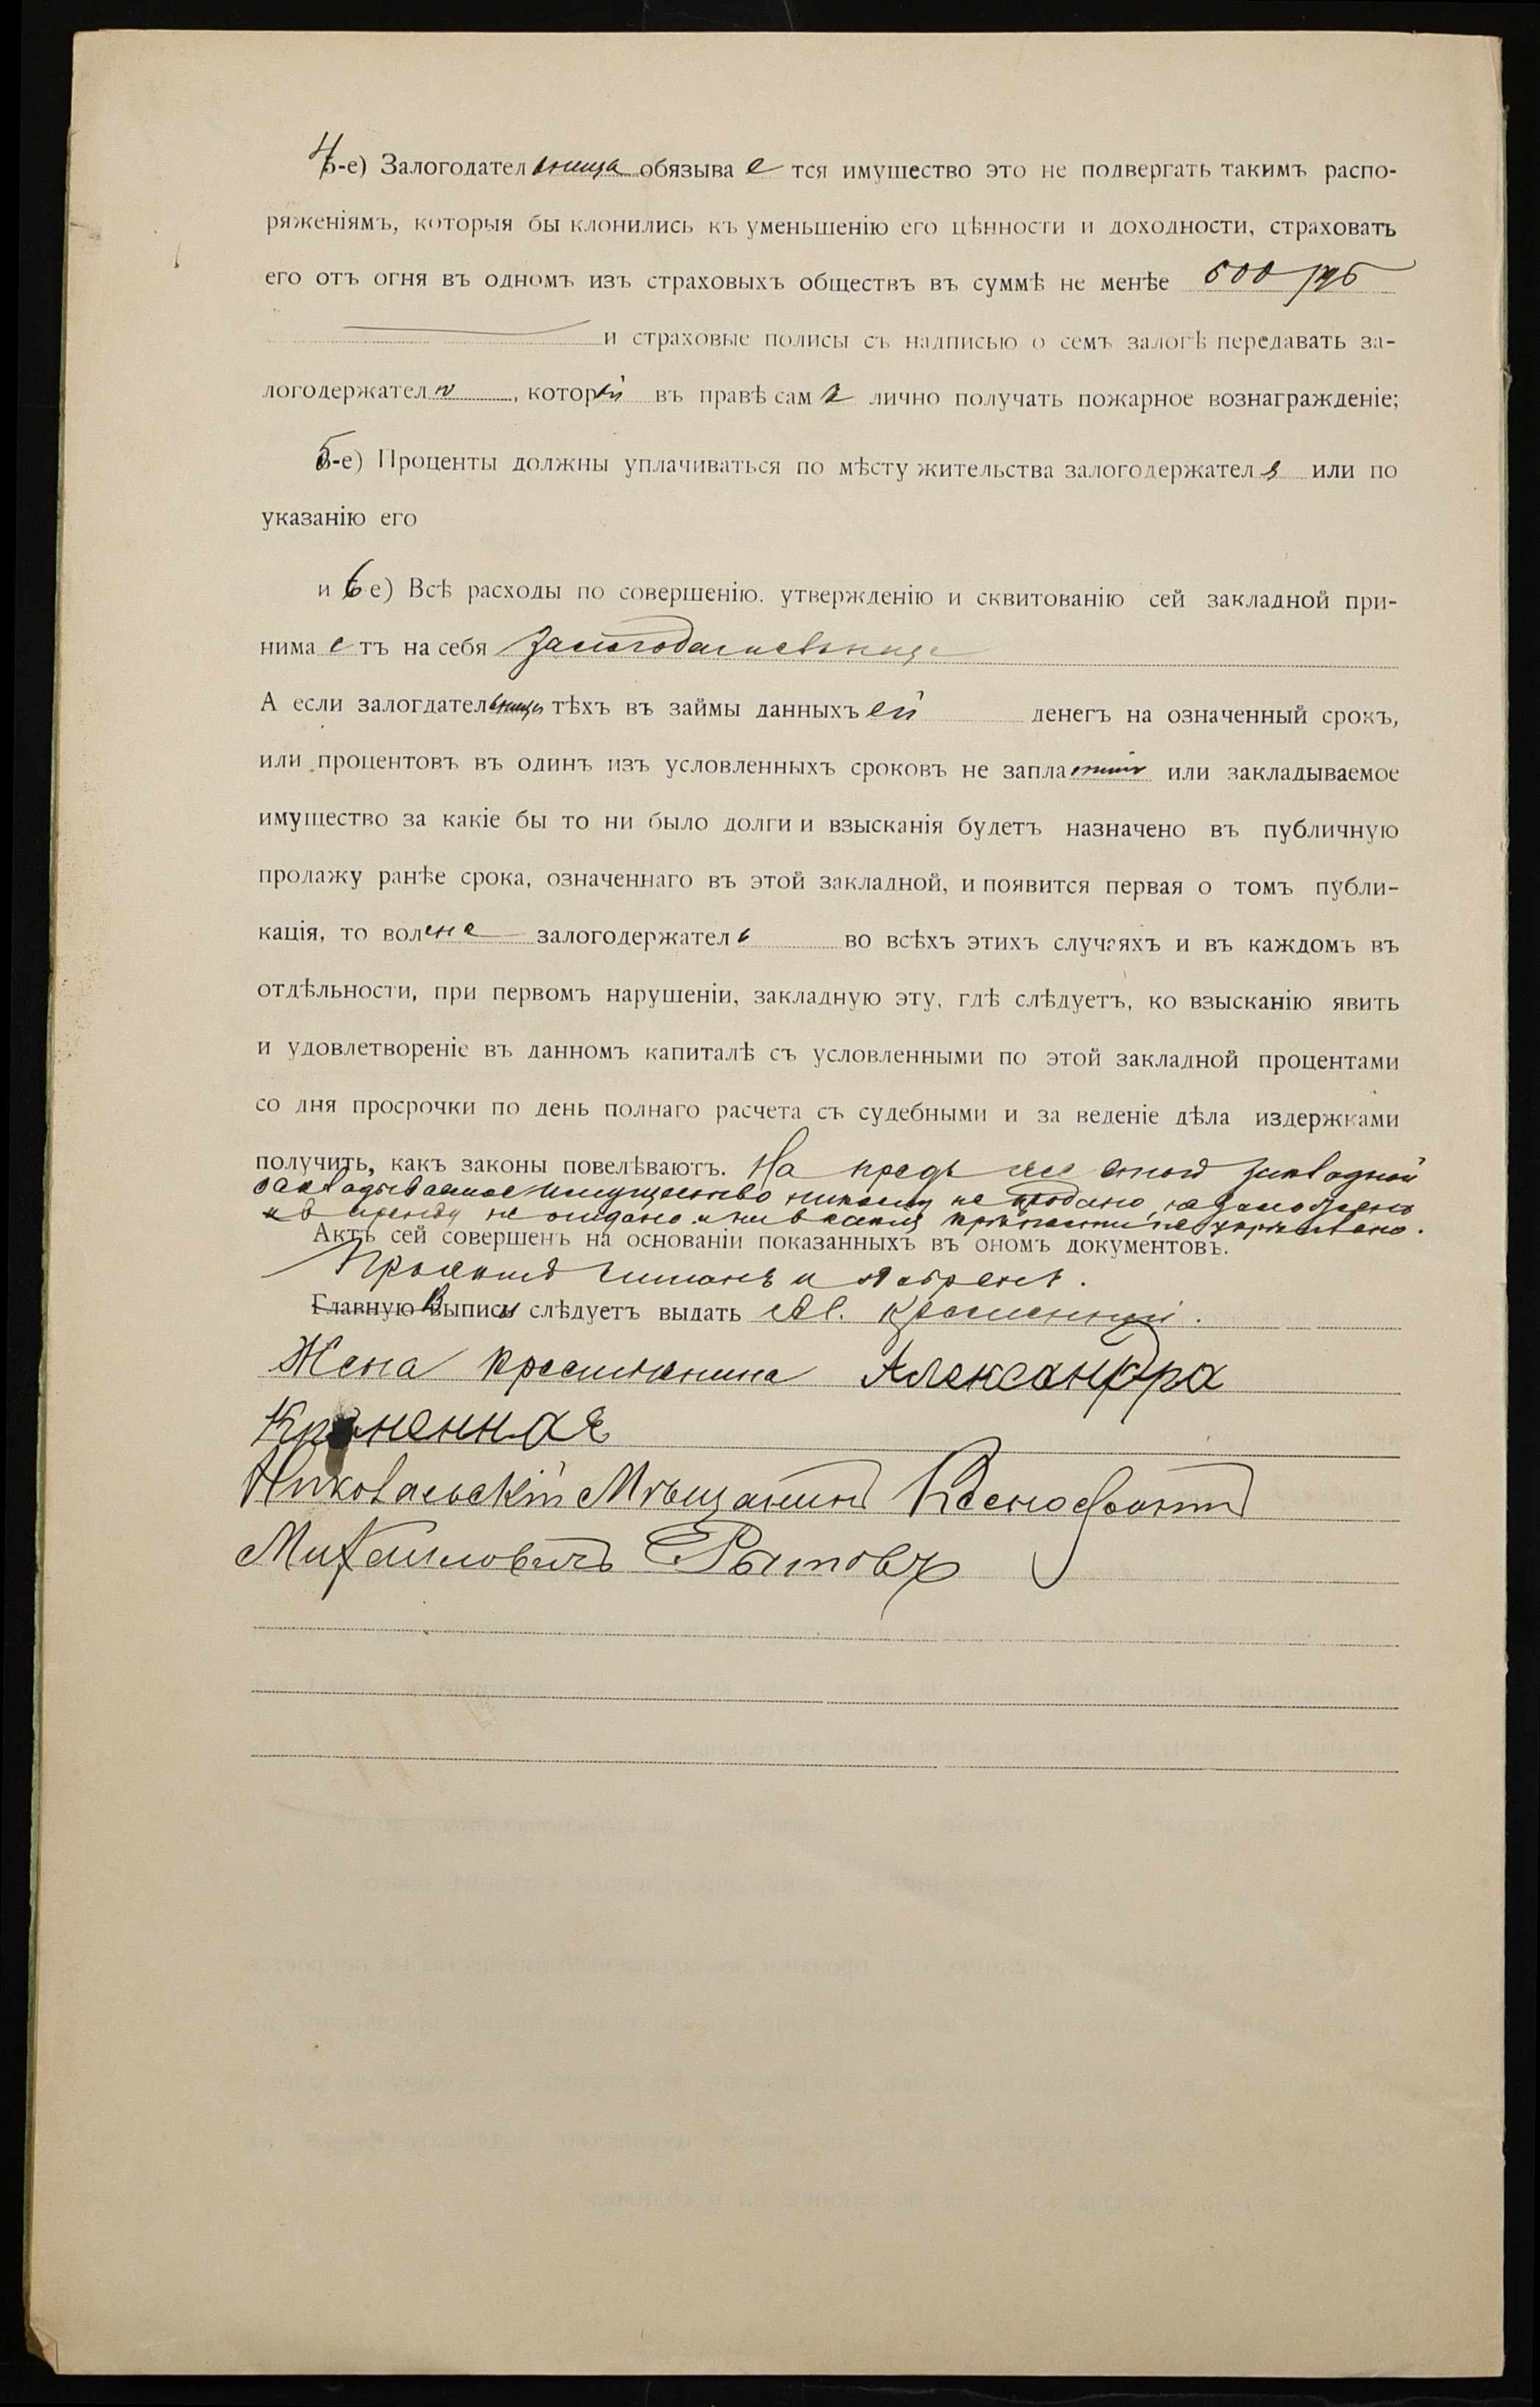 4-е) Залогодательница обязывается имущество это не подвергать такимъ распо-
ряженіямъ, которыя бы клонились къ уменьшенію его цѣнности и доходности, страховать
его отъ огня въ одномъ изъ страховыхъ обществъ въ суммѣ не менѣе 500 руб
и страховые полисы съ надписью о семъ залогѣ передавать за-
логодержателю, который въ правѣ самъ лично получать пожарное вознагражденіе;
5-е) Проценты должны уплачиваться по мѣсту жительства залогодержателя или по
указанію его
и 6-е) Всѣ расходы по совершенію. утвержденію и сквитованію сей закладной при-
нимаетъ на себя залогодательница
А если залогдательница тѣхъ въ займы данныхъ ей денегъ на означенный срокъ,
или процентовъ въ одинъ изъ условленныхъ сроковъ не заплатитъ или закладываемое
имущество за какіе бы то ни было долги и взысканія будетъ назначено въ публичную
продажу ранѣе срока, означеннаго въ этой закладной, и появится первая о томъ публи-
кація, то воленъ залогодержатель во всѣхъ этихъ случаяхъ и въ каждомъ въ
отдѣльности, при первомъ нарушеніи, закладную эту, гдѣ слѣдуетъ, ко взысканію явить
и удовлетвореніе въ данномъ капиталѣ съ условленными по этой закладной процентами
со дня просрочки по день полнаго расчета съ судебными и за веденіе дѣла издержками
получить, какъ законы повелѣваютъ. На предь же этой закладной
закладываемое имущество никому не продано, не заложено
и въ аренду не отдано и ни въ какія крѣпости не укрѣплено.
Актъ сей совершенъ на основаніи показанныхъ въ ономъ документовъ.
Проектъ читанъ и одобренъ.
Главную Выпись слѣдуетъ выдать
Жена крестьянина Александра
Кроненная
Никольскій Мѣщанинъ Ксенофонтъ
Михаиловичъ Рытовъ